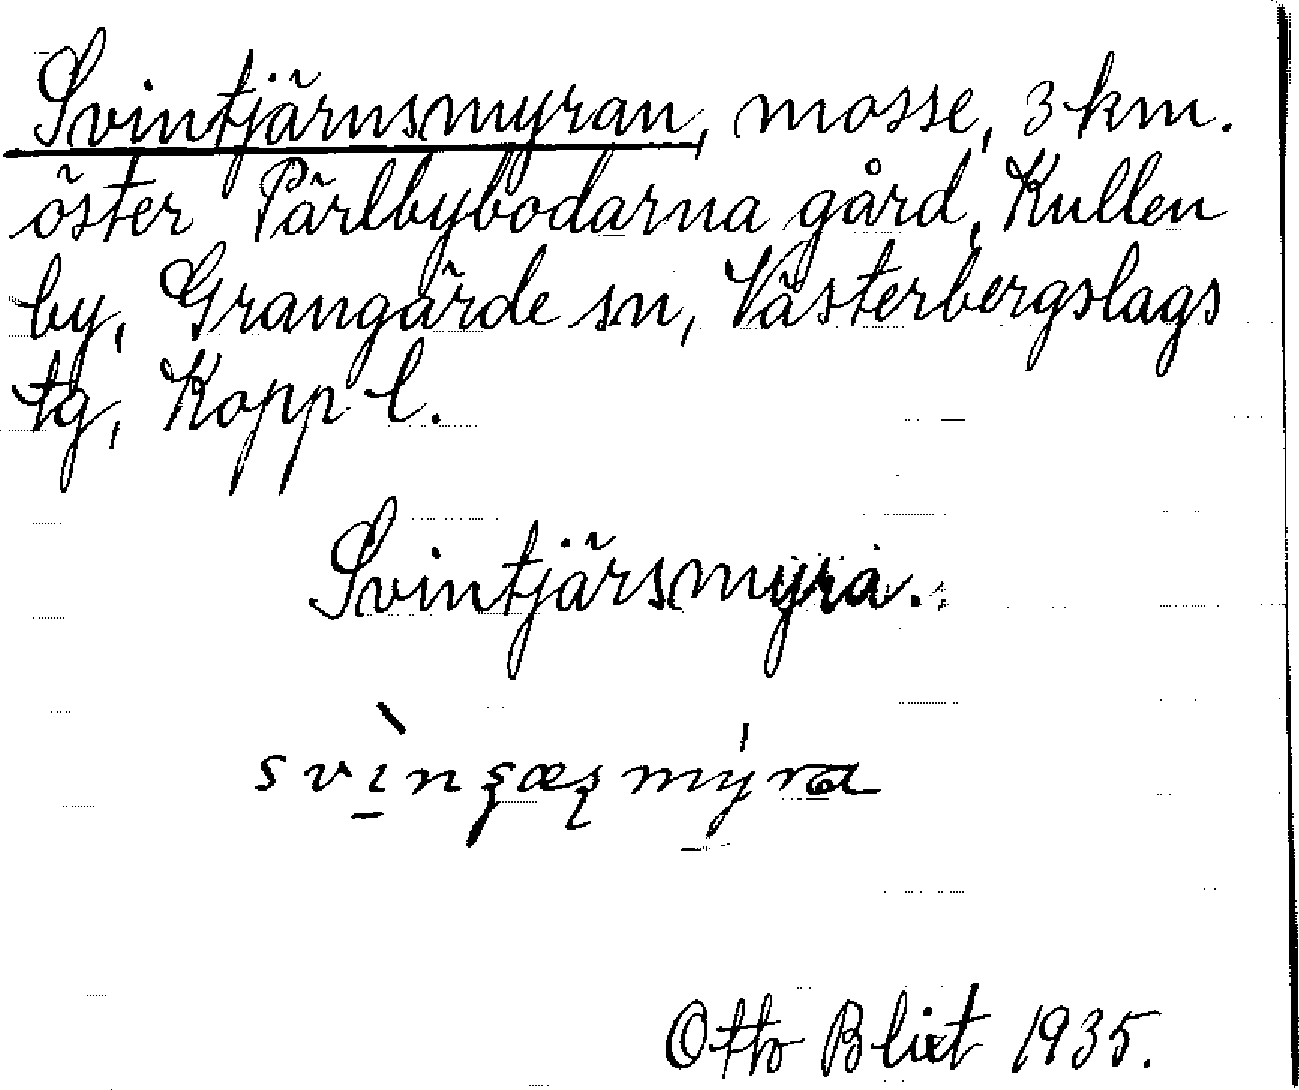 Svintjärnsmyran, mosse, 3 km.
öster Pärlbybodarna gård, Kullen
by, Grangärde sn, Västerbergslags
tg, Kopp l.
Svintjärsmyra.
Otto Blixt 1935.